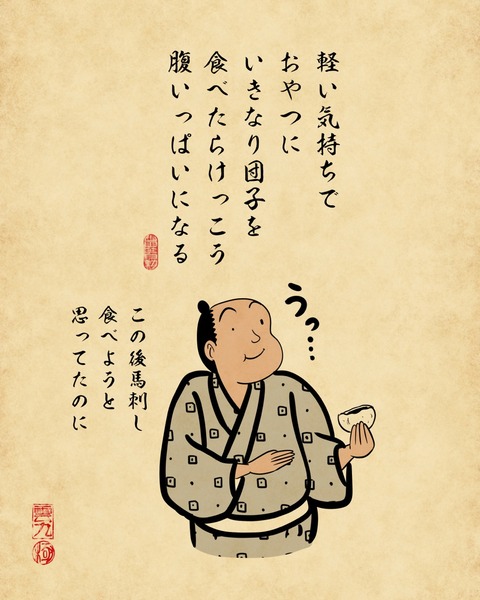 軽い気持ちで
おやつに
いきなり団子を
食べたらけっこう
腹いっぱいになる
うっ…
この後馬刺し
食べようと
思ってたのに